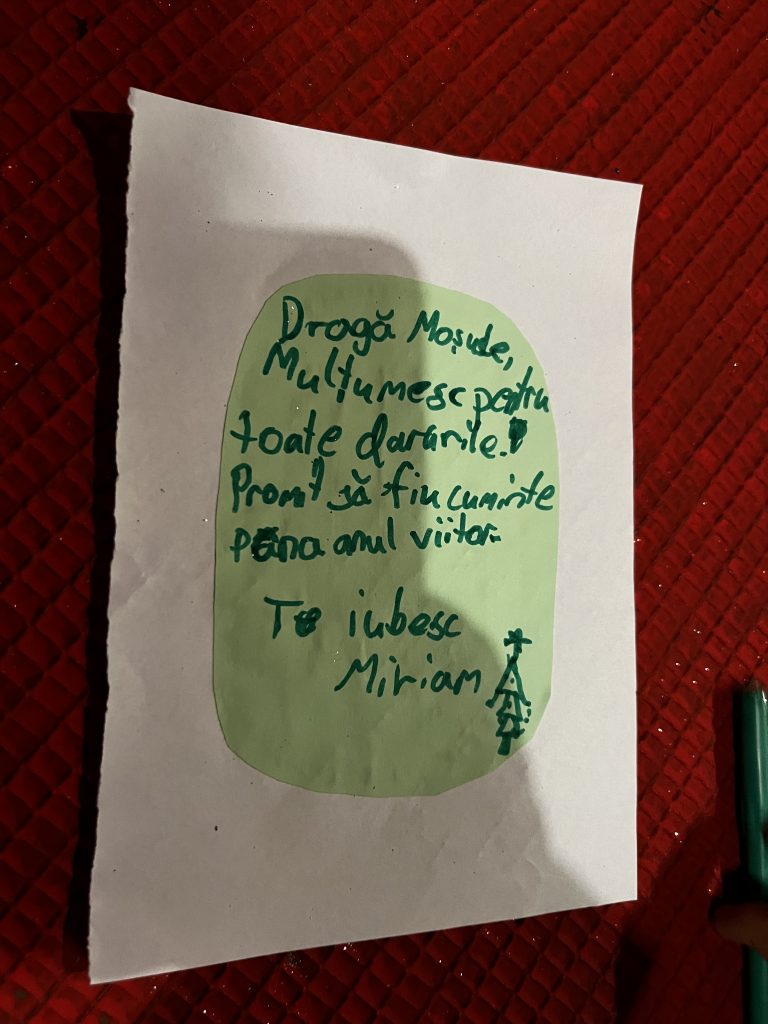 Dragă Moșule,
Mulțumesc pentru
toate darurile!
Promit să fiu cuminte
pana anul viitor.
Te iubesc
Miriam